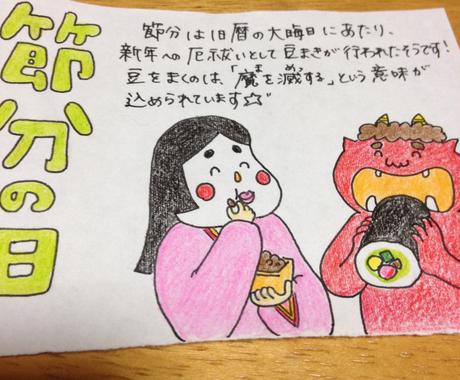 節分の日
節分は旧暦の大晦日にあたり、
新年への厄払いとして豆まきが行われたそうです!
豆をまくのは、「魔を滅する」という意味が
込められています☆